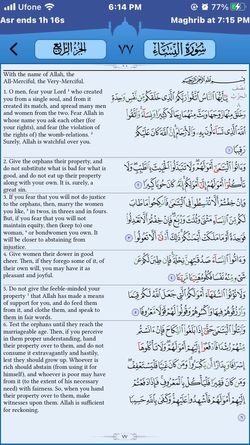 Ufone 6:14 PM 77%
Asr ends 1h 16s Maghrib at 7:15 PM
الجزء الرابع ٧٧ سورة النساء
With the name of Allah, the
All-Merciful, the Very-Merciful.
1. O men, fear your Lord ¹ who created
you from a single soul, and from it
created its match, and spread many men
and women from the two. Fear Allah in
whose name you ask each other (for
your rights), and fear (the violation of
the rights of) the womb-relations. ²
Surely, Allah is watchful over you.
بِسْمِ اللَّهِ الرَّحْمَٰنِ الرَّحِيمِ
يَا أَيُّهَا النَّاسُ اتَّقُوا رَبَّكُمُ الَّذِي خَلَقَكُمْ مِنْ نَفْسٍ وَاحِدَةٍ
وَخَلَقَ مِنْهَا زَوْجَهَا وَبَثَّ مِنْهُمَا رِجَالًا كَثِيرًا وَنِسَاءً وَاتَّقُوا
اللَّهَ الَّذِي تَسَاءَلُونَ بِهِ وَالْأَرْحَامَ إِنَّ اللَّهَ كَانَ عَلَيْكُمْ
رَقِيبًا ١
2. Give the orphans their property, and
do not substitute what is bad for what is
good, and do not eat up their property
along with your own. It is, surely, a
great sin.
وَآتُوا الْيَتَامَىٰ أَمْوَالَهُمْ وَلَا تَتَبَدَّلُوا الْخَبِيثَ بِالطَّيِّبِ وَلَا
تَأْكُلُوا أَمْوَالَهُمْ إِلَىٰ أَمْوَالِكُمْ إِنَّهُ كَانَ حُوبًا كَبِيرًا ٢
3. If you fear that you will not do justice
to the orphans, then, marry the women
you like, ³ in twos, in threes and in fours.
But, if you fear that you will not
maintain equity, then (keep to) one
woman, ⁴ or bondwomen you own. It
will be closer to abstaining from
injustice.
وَإِنْ خِفْتُمْ أَلَّا تُقْسِطُوا فِي الْيَتَامَىٰ فَانْكِحُوا مَا طَابَ
لَكُمْ مِنَ النِّسَاءِ مَثْنَىٰ وَثُلَاثَ وَرُبَاعَ فَإِنْ خِفْتُمْ أَلَّا تَعْدِلُوا
فَوَاحِدَةً أَوْ مَا مَلَكَتْ أَيْمَانُكُمْ ذَٰلِكَ أَدْنَىٰ أَلَّا تَعُولُوا ٣
4. Give women their dower in good
cheer. Then, if they forego some of it, of
their own will, you may have it as
pleasant and joyful.
وَآتُوا النِّسَاءَ صَدُقَاتِهِنَّ نِحْلَةً فَإِنْ طِبْنَ لَكُمْ عَنْ
شَيْءٍ مِنْهُ نَفْسًا فَكُلُوهُ هَنِيئًا مَرِيئًا ٤
5. Do not give the feeble-minded your
property ⁵ that Allah has made a means
of support for you, and do feed them
from it, and clothe them, and speak to
them in fair words.
وَلَا تُؤْتُوا السُّفَهَاءَ أَمْوَالَكُمُ الَّتِي جَعَلَ اللَّهُ لَكُمْ قِيَامًا
وَارْزُقُوهُمْ فِيهَا وَاكْسُوهُمْ وَقُولُوا لَهُمْ قَوْلًا مَعْرُوفًا ٥
6. Test the orphans until they reach the
marriageable age. Then, if you perceive
in them proper understanding, hand
their property over to them, and do not
consume it extravagantly and hastily,
lest they should grow up. Whoever is
rich should abstain (from using it for
himself), and whoever is poor may have
from it (to the extent of his necessary
need) with fairness. So, when you hand
their property over to them, make
witnesses upon them. Allah is sufficient
for reckoning.
وَابْتَلُوا الْيَتَامَىٰ حَتَّىٰ إِذَا بَلَغُوا النِّكَاحَ فَإِنْ آنَسْتُمْ
مِنْهُمْ رُشْدًا فَادْفَعُوا إِلَيْهِمْ أَمْوَالَهُمْ وَلَا تَأْكُلُوهَا
إِسْرَافًا وَبِدَارًا أَنْ يَكْبَرُوا وَمَنْ كَانَ غَنِيًّا فَلْيَسْتَعْفِفْ
وَمَنْ كَانَ فَقِيرًا فَلْيَأْكُلْ بِالْمَعْرُوفِ فَإِذَا دَفَعْتُمْ
إِلَيْهِمْ أَمْوَالَهُمْ فَأَشْهِدُوا عَلَيْهِمْ وَكَفَىٰ بِاللَّهِ حَسِيبًا ٦
٧٧